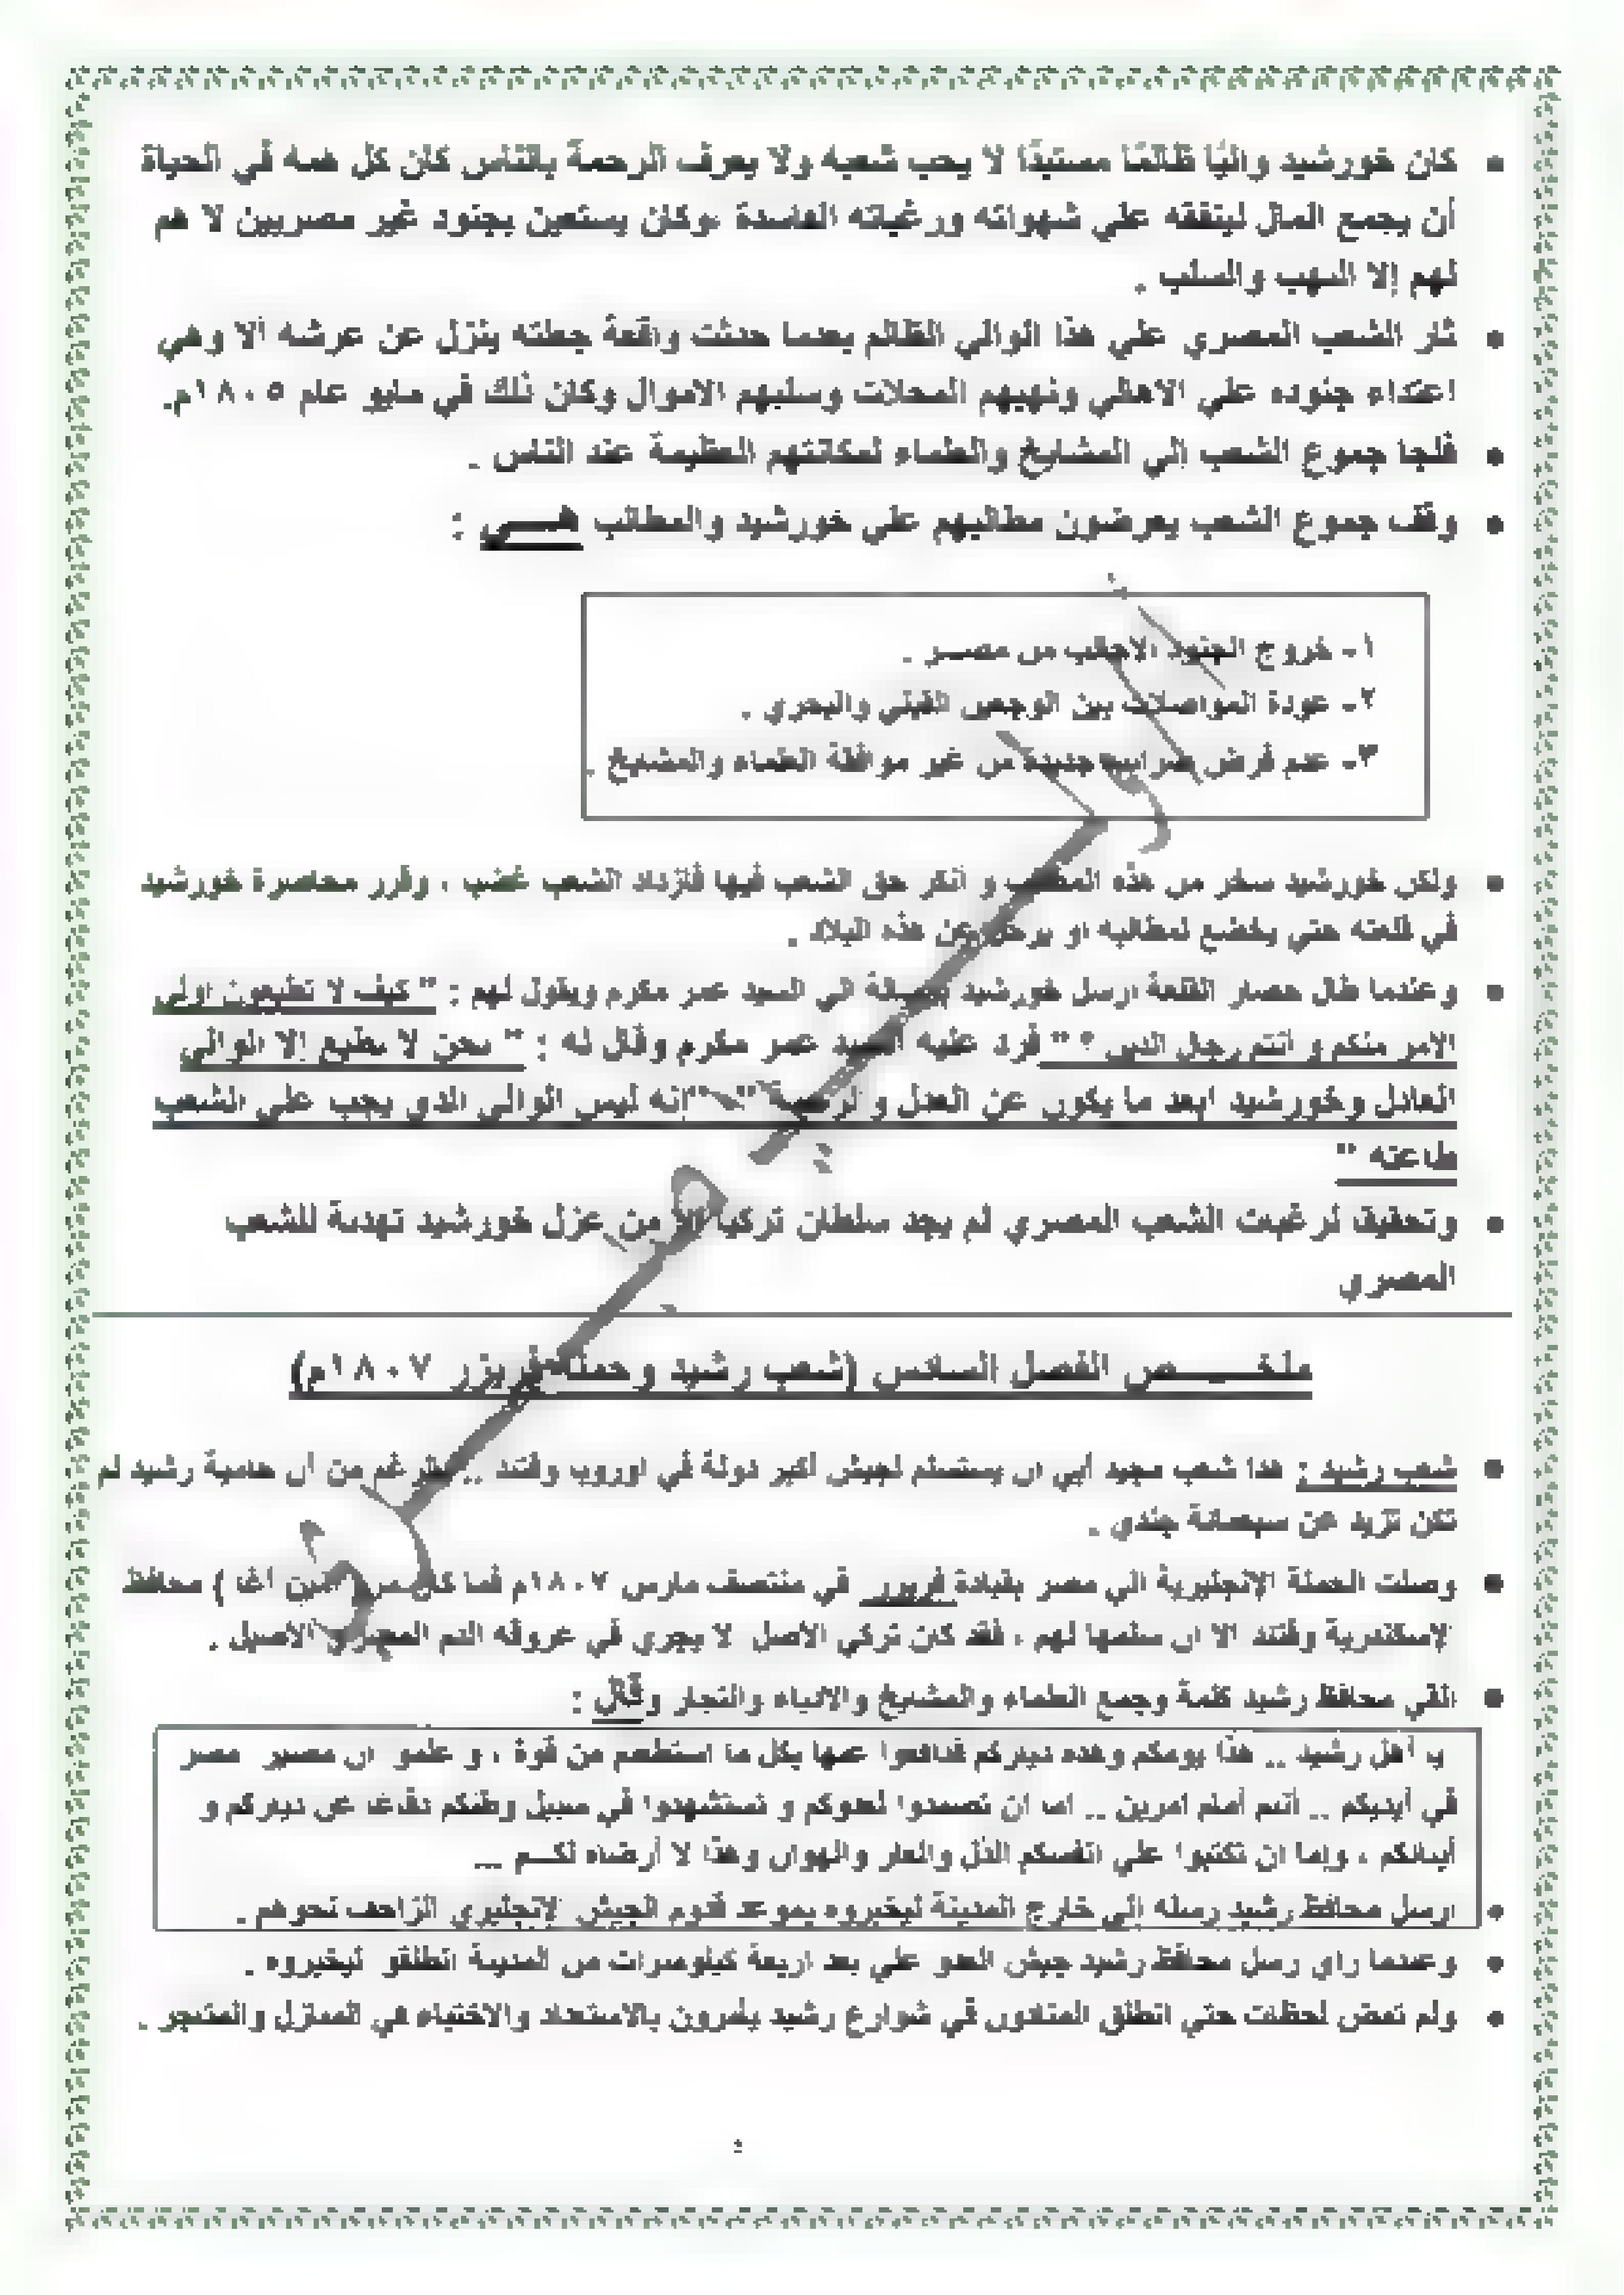 كان خورشيد واليًا ظالمًا مستبدًا لا يحب شعبه ولا يعرف الرحمة بالناس كان كل همه في الحياة
أن يجمع المال لينفقه علي شهواته ورغباته الفاسدة .وكان يستعين بجنود غير مصريين لا هم
لهم إلا النهب والسلب .
ثار الشعب المصري علي هذا الوالي الظالم بعدما حدثت واقعة جعلته ينزل عن عرشه ألا وهي
اعتداء جنوده علي الاهالي ونهبهم المحلات وسلبهم الاموال وكان ذلك في مايو عام ١٨٠٥م.
فلجا جموع الشعب إلي المشايخ والعلماء لمكانتهم العظيمة عند الناس .
وقف جموع الشعب يعرضون مطالبهم علي خورشيد والمطالب هـــي :
١- خروج الجنود الاجانب من مصـر .
٢- عودة المواصلات بين الوجهين القبلي والبحري .
٣- عدم فرض ضرائب جديدة من غير موافقة العلماء والمشايخ .
ولكن خورشيد سخر من هذه المطالب و أنكر حق الشعب فيها فازداد الشعب غضب ، وقرر محاصرة خورشيد
في قلعته حتي يخضع لمطالبه او يرحل عن هذه البلاد .
وعندما طال حصار القلعة ارسل خورشيد برسالة الي السيد عمر مكرم ويقول لهم : " كيف لا تطيعون اولي
الامر منكم و أنتم رجال الدين ؟ " فرد عليه السيد عمر مكرم وقال له : " نحن لا نطيع إلا الوالي
العادل وخورشيد ابعد ما يكون عن العدل و الرحمة " "إنه ليس الوالي الذي يجب علي الشعب
طاعته "
وتحقيق لرغبات الشعب المصري لم يجد سلطان تركيا إلا من عزل خورشيد تهدئة للشعب
المصري
ملخـــــص الفصل السادس (شعب رشيد وحملة فريزر ١٨٠٧م)
شعب رشيد : هذا شعب مجيد أبي ان يستسلم لجيش أكبر دولة في اوروب وقتئذ .. بالرغم من أن حامية رشيد لم
تكن تزيد عن سبعمائة جندي .
وصلت الحملة الإنجليزية الي مصر بقيادة فريزر في منتصف مارس ١٨٠٧م فما كان من (أمين أغا ) محافظ
لإسكندرية وقتئذ الا ان سلمها لهم ، فقد كان تركي الاصل لا يجري في عروقه الدم المصري الاصيل .
القي محافظ رشيد كلمة وجمع العلماء والمشايخ والاثرياء والتجار وقال :
يا أهل رشيد .. هذا يومكم وهذه دياركم فدافعوا عنها بكل ما استطعتم من قوة ، و علمو ان مصير مصر
في أيديكم .. أنتم أمام امرين .. اما ان تصمدوا لعدوكم و تستشهدوا في سبيل وطنكم دفاعا عن دياركم و
أبنائكم ، وإما ان تكتبوا علي انفسكم الذل والعار والهوان وهذا لا أرضاه لكــم ...
ارسل محافظ رشيد رسله إلي خارج المدينة ليخبروه بموعد قدوم الجيش لإنجليزي الزاحف نحوهم .
وعندما راي رسل محافظ رشيد جيش العدو علي بعد اربعة كيلومترات من المدينة انطلقو ليخبروه .
ولم تمض لحظات حتي انطلق المنادون في شوارع رشيد يأمرون بالاستعداد والاختباء في المنازل والمتاجر .
٤